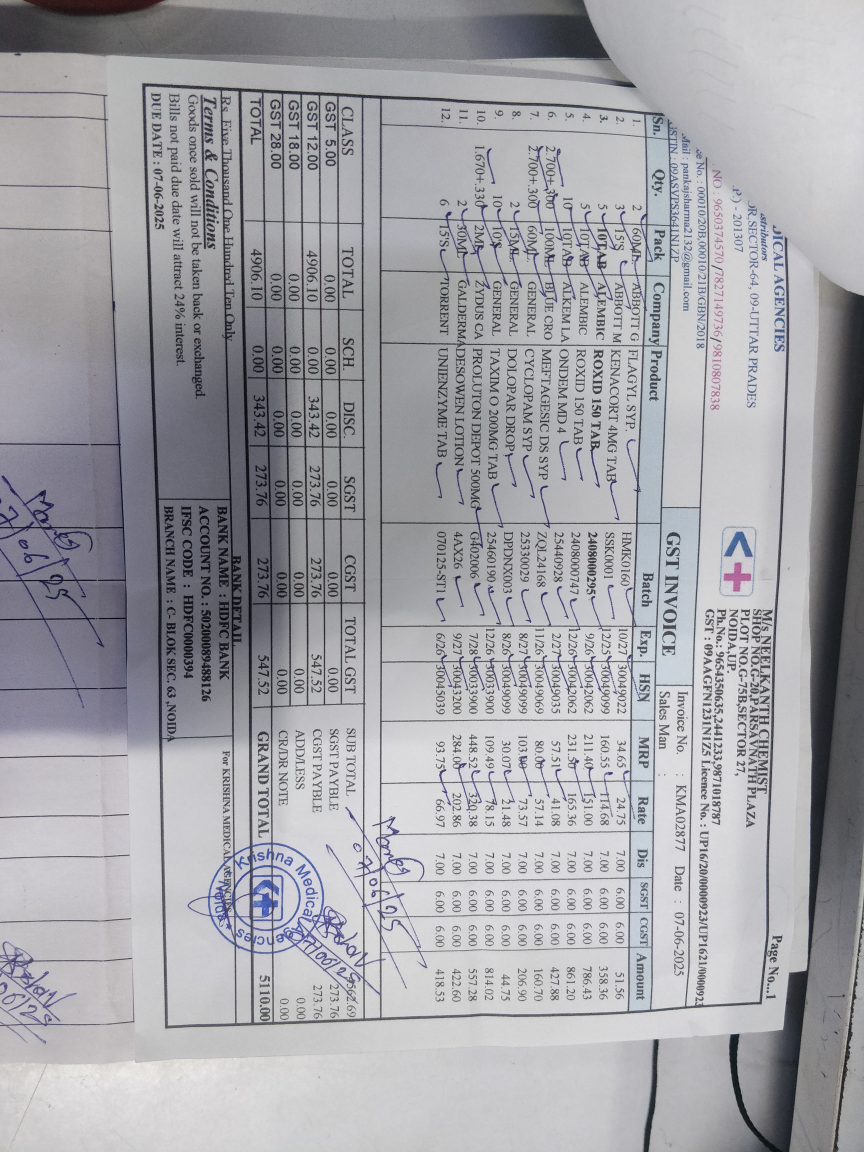 Page No...1
DICAL AGENCIES
istributors
OR,SECTOR-64, 09-UTTAR PRADES
P.) - 201307
NO : 9650374570/7827149736/9810807838
ce No. : 00010/20B,00010/21B/GBN/2018
Mail : pankajsharma2132@gmail.com
GSTIN : 09ASVPS3641N1ZP
M/s NEELKANTH CHEMIST
SHOP NO.G-20,PARSAVNATH PLAZA
PLOT NO.G-75B,SECTOR 27,
NOIDA,UP.
Ph.No.: 9654350635,2441233,9871018787
GST : 09AAGFN1231N1Z5 Licence No. : UP16/20/0000923/UP1621/0000923
GST INVOICE
Invoice No. : KMA02877 Date : 07-06-2025
Sales Man :
Sn. Qty. Pack Company Product Batch Exp. HSN MRP Rate Dis SGST CGST Amount
1. 2 60ML ABBOTT G FLAGYL SYP. HMK0160 10/27 30049022 34.65 24.75 7.00 6.00 6.00 51.56
2. 3 15'S ABBOTT M KENACORT 4MG TAB SSK0001 12/25 30049099 160.55 114.68 7.00 6.00 6.00 358.36
3. 5 10TAB ALEMBIC ROXID 150 TAB. 2408000295 9/26 30042062 211.40 151.00 7.00 6.00 6.00 786.43
4. 5 10TAB ALEMBIC ROXID 150 TAB 2408000747 12/26 30042062 231.50 165.36 7.00 6.00 6.00 861.20
5. 10 10TAB ALKEM LA ONDEM MD 4 25440928 2/27 30049035 57.51 41.08 7.00 6.00 6.00 427.88
6. 2.700+.300 100ML BLUE CRO MEFTAGESIC DS SYP ZQL24168 11/26 30049069 80.00 57.14 7.00 6.00 6.00 160.70
7. 2.700+.300 60ML GENERAL CYCLOPAM SYP 25330029 8/27 30049099 103.00 73.57 7.00 6.00 6.00 206.90
8. 2 15ML GENERAL DOLOPAR DROP DPDNX003 8/26 30049099 30.07 21.48 7.00 6.00 6.00 44.75
9. 10 10'S GENERAL TAXIM O 200MG TAB 25460190 12/26 30033900 109.49 78.15 7.00 6.00 6.00 814.02
10. 1.670+.330 2ML ZYDUS CA PROLUTON DEPOT 500MG G402006 7/28 30033900 448.52 320.38 7.00 6.00 6.00 557.28
11. 2 30ML GALDERMA DESOWEN LOTION 4AX26 9/27 30043200 284.00 202.86 7.00 6.00 6.00 422.60
12. 6 15'S TORRENT UNIENZYME TAB 070125-ST1 6/26 30045039 93.75 66.97 7.00 6.00 6.00 418.53
07/06/25
CLASS TOTAL SCH. DISC. SGST CGST TOTAL GST
GST 5.00 0.00 0.00 0.00 0.00 0.00 0.00
GST 12.00 4906.10 0.00 343.42 273.76 273.76 547.52
GST 18.00 0.00 0.00 0.00 0.00 0.00 0.00
GST 28.00 0.00 0.00 0.00 0.00 0.00 0.00
TOTAL 4906.10 0.00 343.42 273.76 273.76 547.52
SUB TOTAL 4562.69
SGST PAYBLE 273.76
CGST PAYBLE 273.76
ADD/LESS 0.00
CR/DR NOTE 0.00
GRAND TOTAL 5110.00
Rs. Five Thousand One Hundred Ten Only
Terms & Conditions
Goods once sold will not be taken back or exchanged.
Bills not paid due date will attract 24% interest.
DUE DATE : 07-06-2025
BANK DETAIL
BANK NAME : HDFC BANK
ACCOUNT NO. : 50200089488126
IFSC CODE : HDFC0000394
BRANCH NAME : C- BLOK SEC. 63 ,NOIDA
For KRISHNA MEDICAL AGENCIES
Krishna Medical Agencies
NOIDA